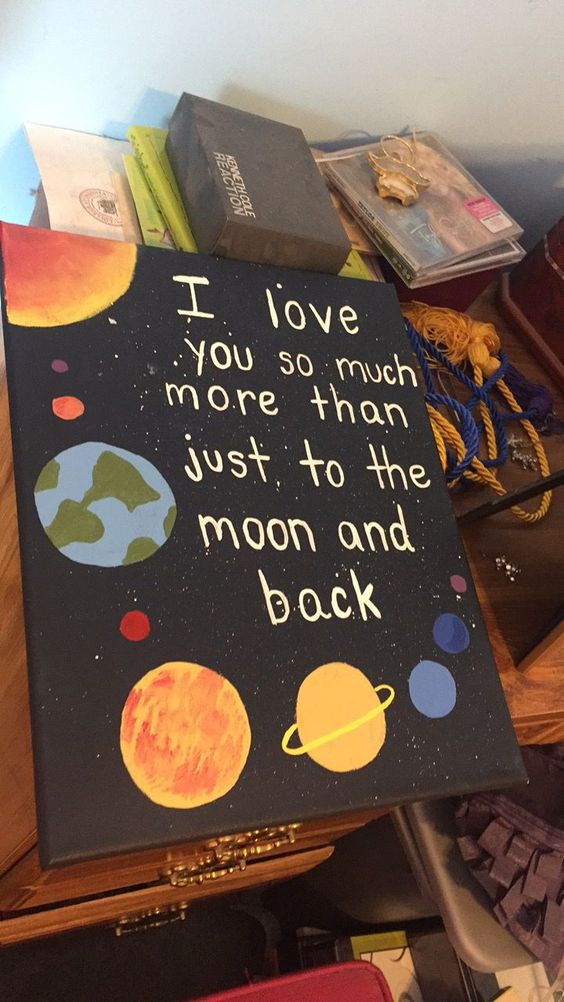 KENNETH COLE
REACTION
I love
you so much
more than
just to the
moon and
back